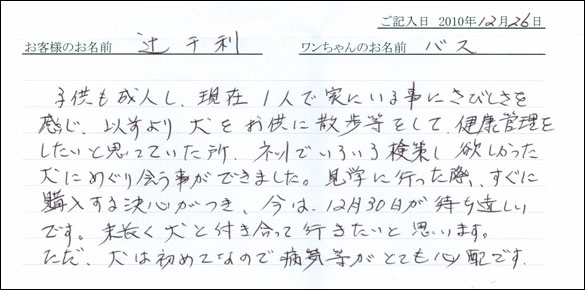 ご記入日 2010年12月26日
お客様のお名前 辻 千利 ワンちゃんのお名前 バス
子供も成人し、現在1人で家にいる事にさびしさを
感じ、以前より犬をお供に散歩等をして、健康管理を
したいと思っていた所、ネットでいろいろ検索し欲しかった
犬にめぐり会う事ができました。見学に行った際、すぐに
購入する決心がつき、今は、12月30日が待ち遠しい
です。末長く犬と付き合って行きたいと思います。
ただ、犬は初めてなので病気等がとても心配です。